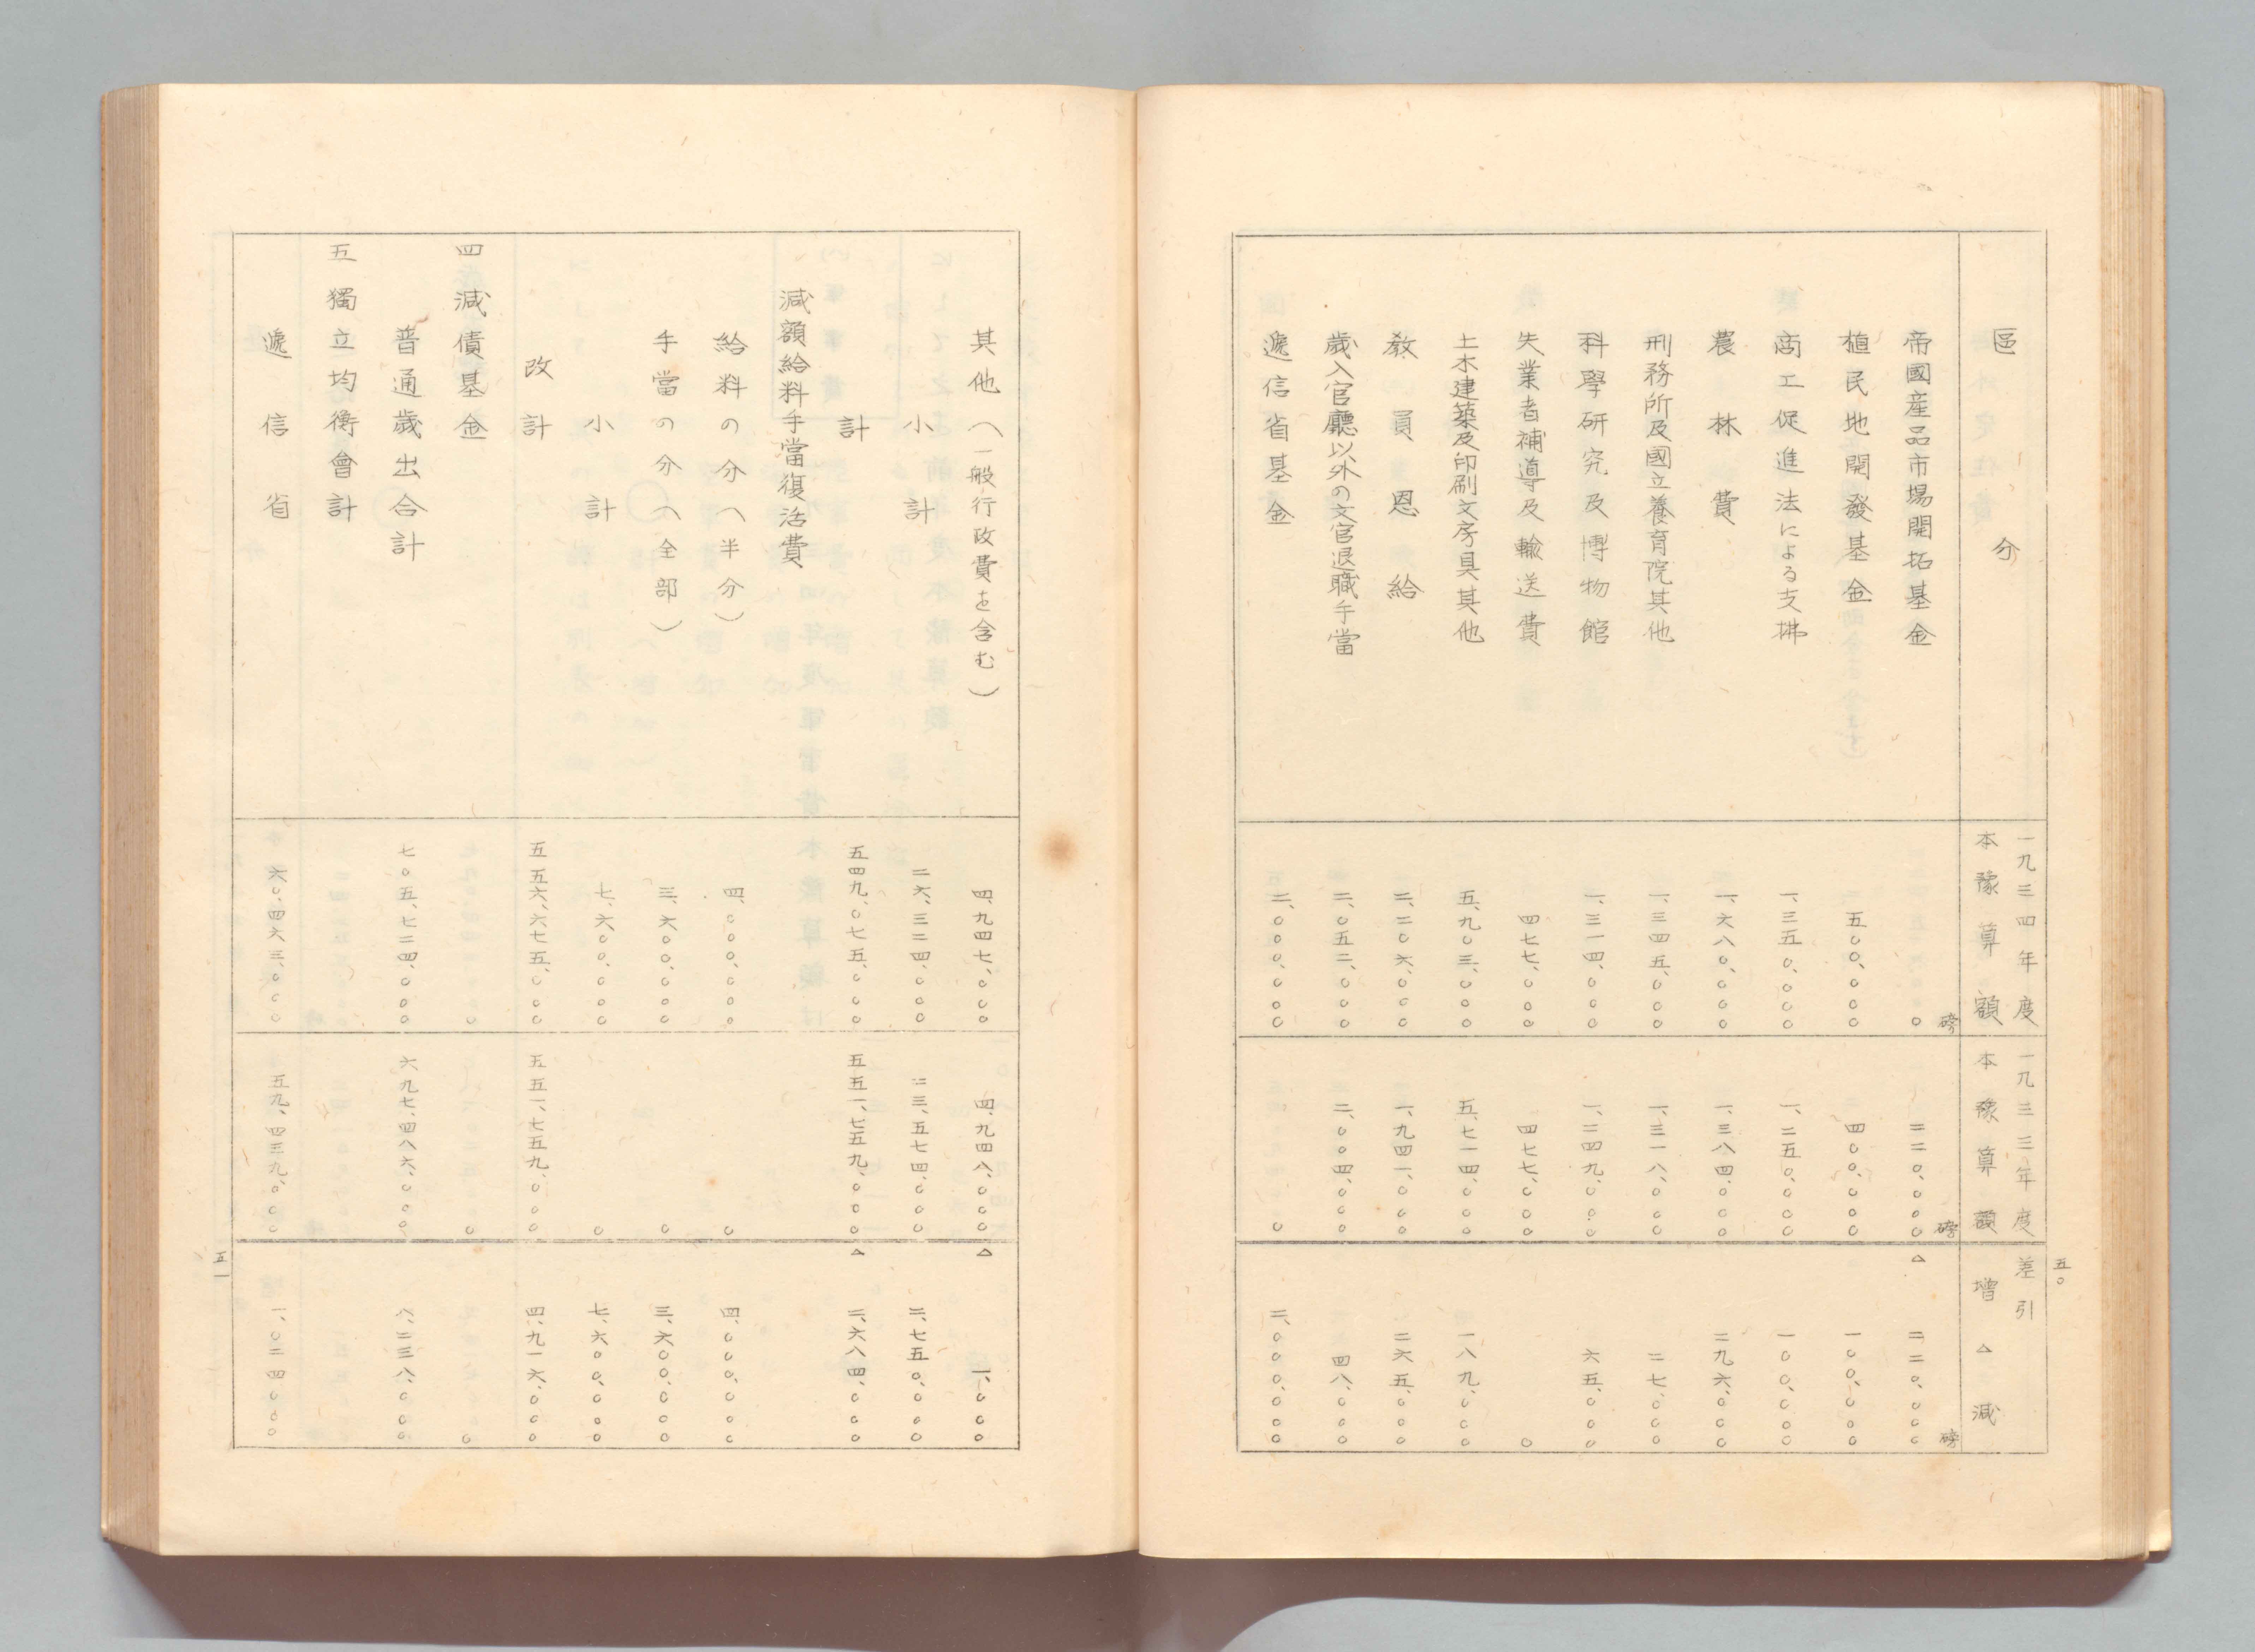 五〇
區分 一九三四年度本豫算額 一九三三年度本豫算額 差引増△減
磅 磅 磅
帝國産品市場開拓基金 〇 二二〇、〇〇〇 △二二〇、〇〇〇
植民地開發基金 五〇〇、〇〇〇 四〇〇、〇〇〇 一〇〇、〇〇〇
商工促進法による支拂 一、三五〇、〇〇〇 一、二五〇、〇〇〇 一〇〇、〇〇〇
農林費 一、六八〇、〇〇〇 一、三八四、〇〇〇 二九六、〇〇〇
刑務所及國立養育院其他 一、三四五、〇〇〇 一、三一八、〇〇〇 二七、〇〇〇
科學研究及博物館 一、三一四、〇〇〇 一、二四九、〇〇〇 六五、〇〇〇
失業者補導及輸送費 四七七、〇〇〇 四七七、〇〇〇 〇
土木建築及印刷文房具其他 五、九〇三、〇〇〇 五、七一四、〇〇〇 一八九、〇〇〇
教員恩給 二、二〇六、〇〇〇 一、九四一、〇〇〇 二六五、〇〇〇
歳入官廳以外の文官退職手當 二、〇五二、〇〇〇 二、〇〇四、〇〇〇 四八、〇〇〇
遞信省基金 二、〇〇〇、〇〇〇 〇 二、〇〇〇、〇〇〇
其他(一般行政費を含む) 四、九四七、〇〇〇 四、九四八、〇〇〇 △一、〇〇〇
小計 二六、三二四、〇〇〇 二三、五七四、〇〇〇 二、七五〇、〇〇〇
計 五四九、〇七五、〇〇〇 五五一、七五九、〇〇〇 △二、六八四、〇〇〇
減額給料手當復活費
給料の分(半分) 四、〇〇〇、〇〇〇 〇 四、〇〇〇、〇〇〇
手當の分(全部) 三、六〇〇、〇〇〇 〇 三、六〇〇、〇〇〇
小計 七、六〇〇、〇〇〇 〇 七、六〇〇、〇〇〇
改計 五五六、六七五、〇〇〇 五五一、七五九、〇〇〇 四、九一六、〇〇〇
四減債基金 〇 〇 〇
普通歳出合計 七〇五、七二四、〇〇〇 六九七、四八六、〇〇〇 八、二三八、〇〇〇
五獨立均衡會計
遞信省 六〇、四六三、〇〇〇 五九、四三九、〇〇〇 一、〇二四〇〇〇
五一